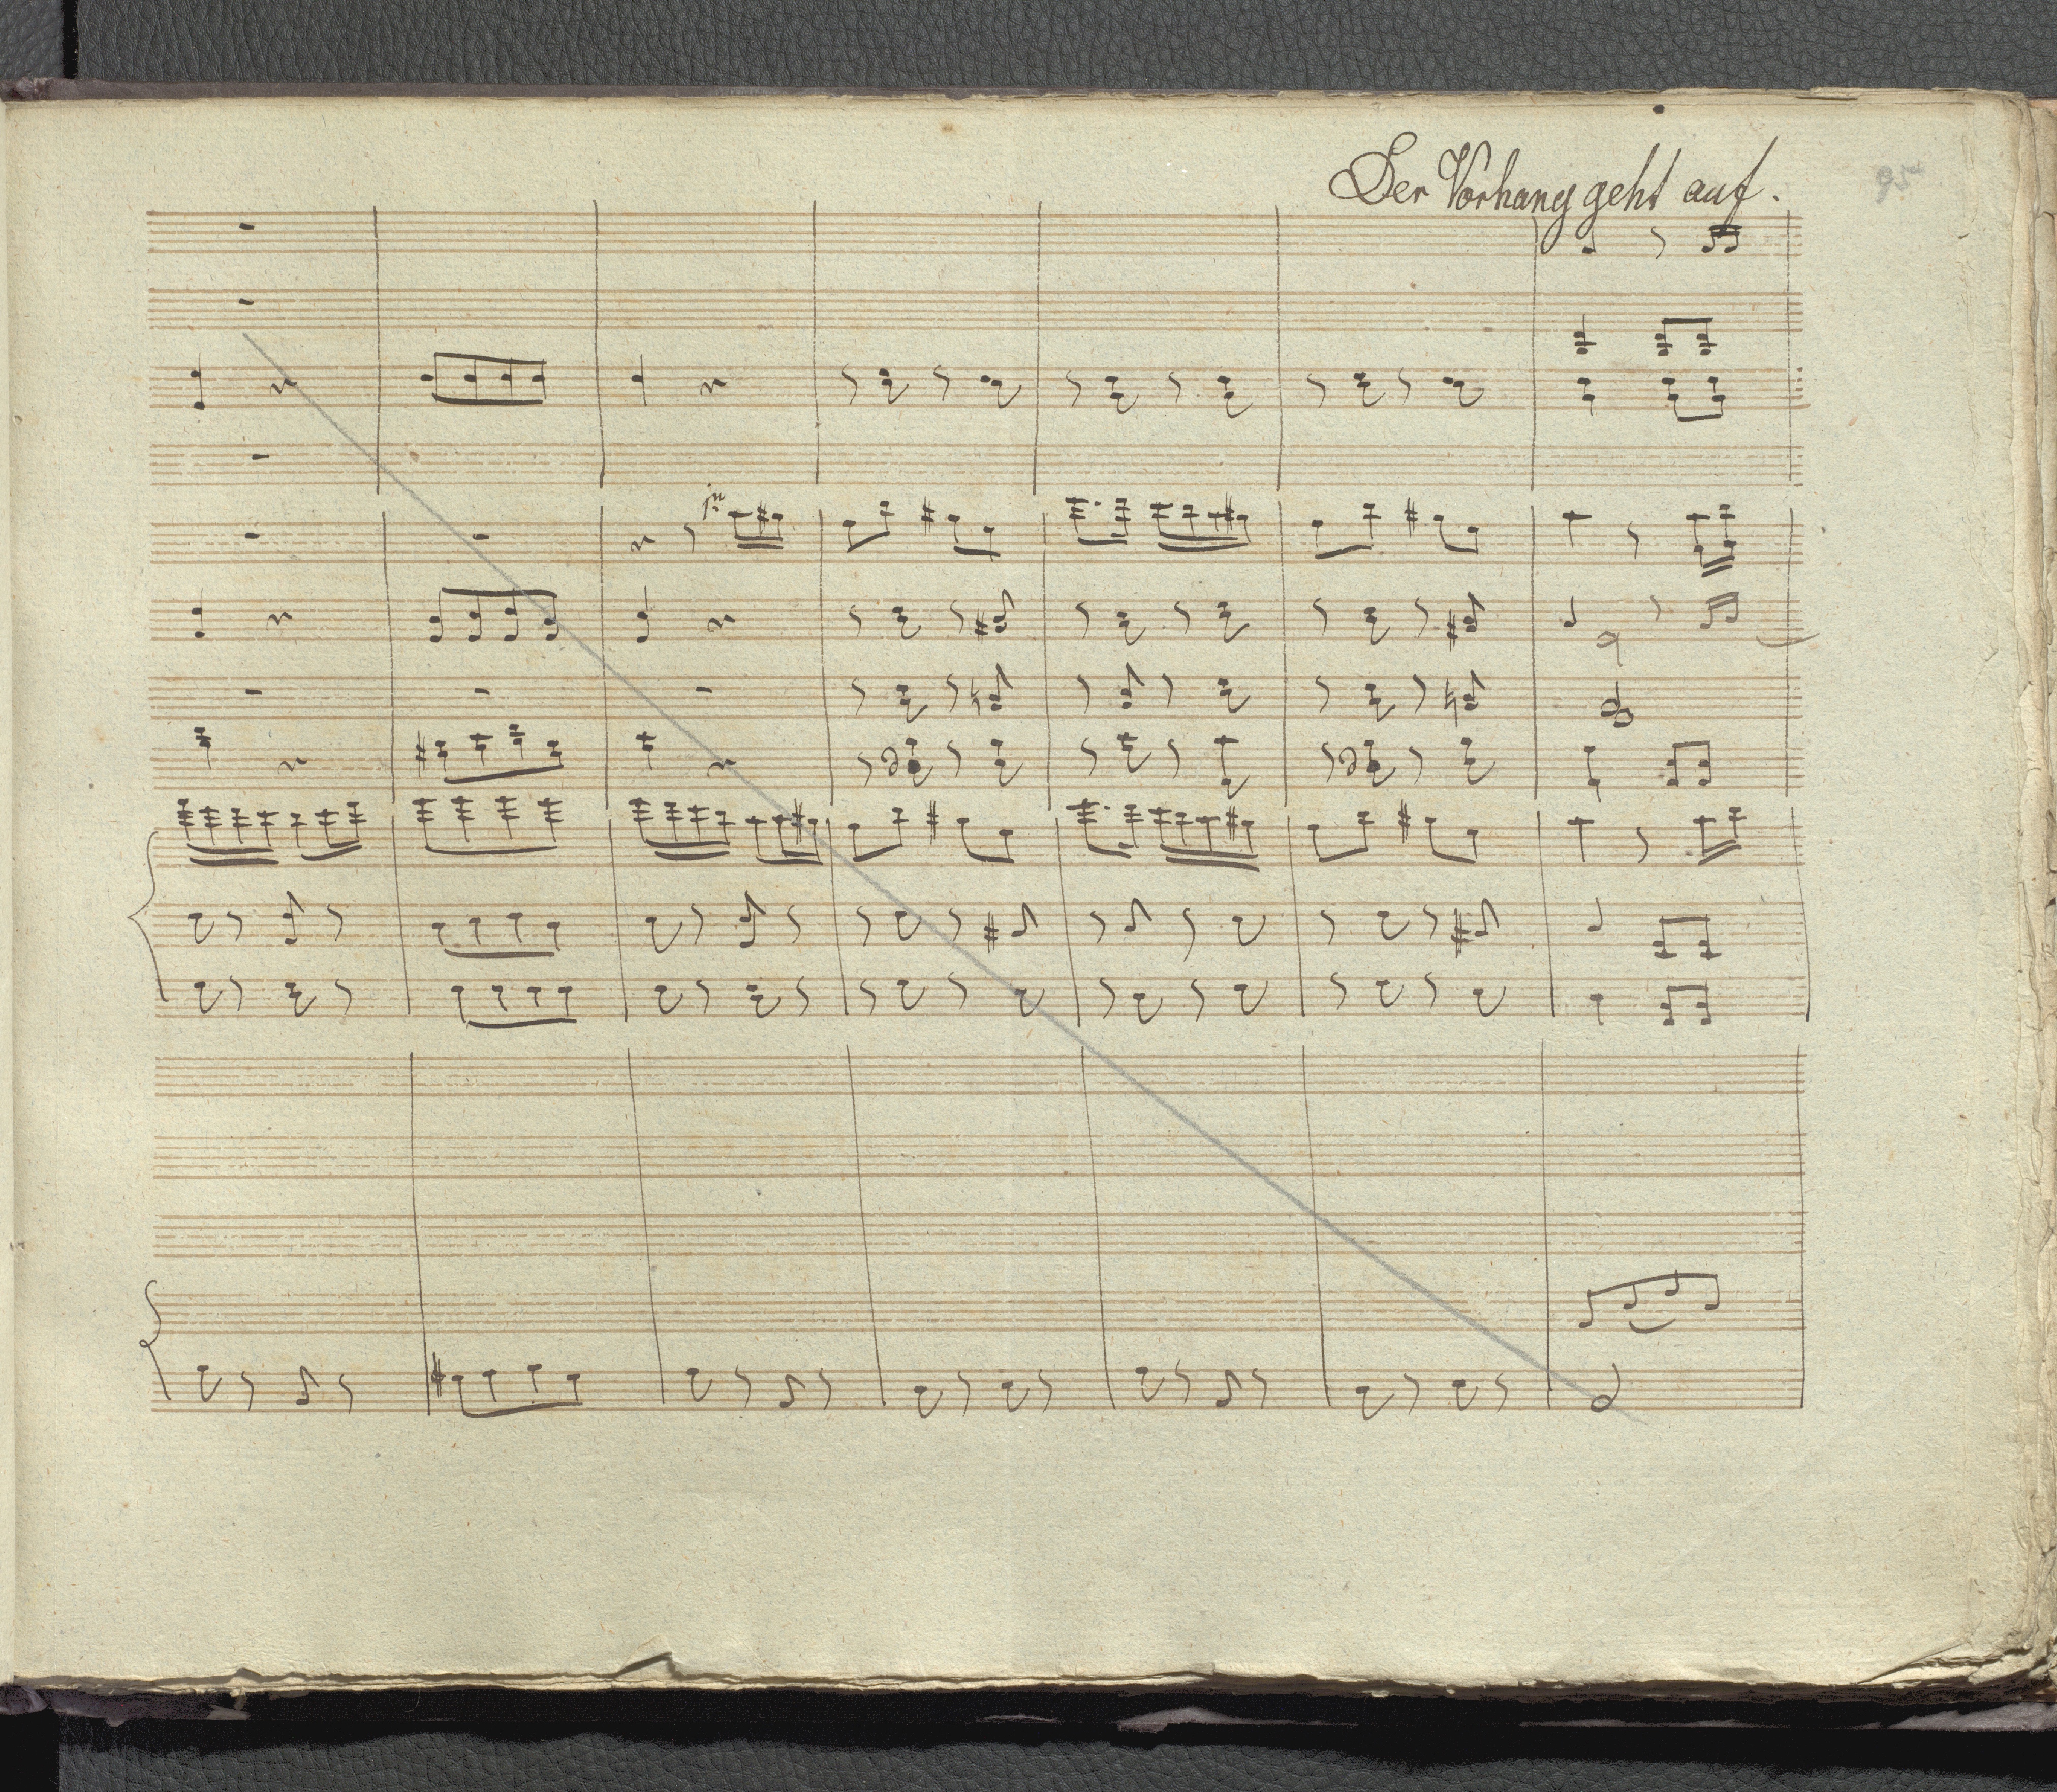 Der Vorhang geht auf.